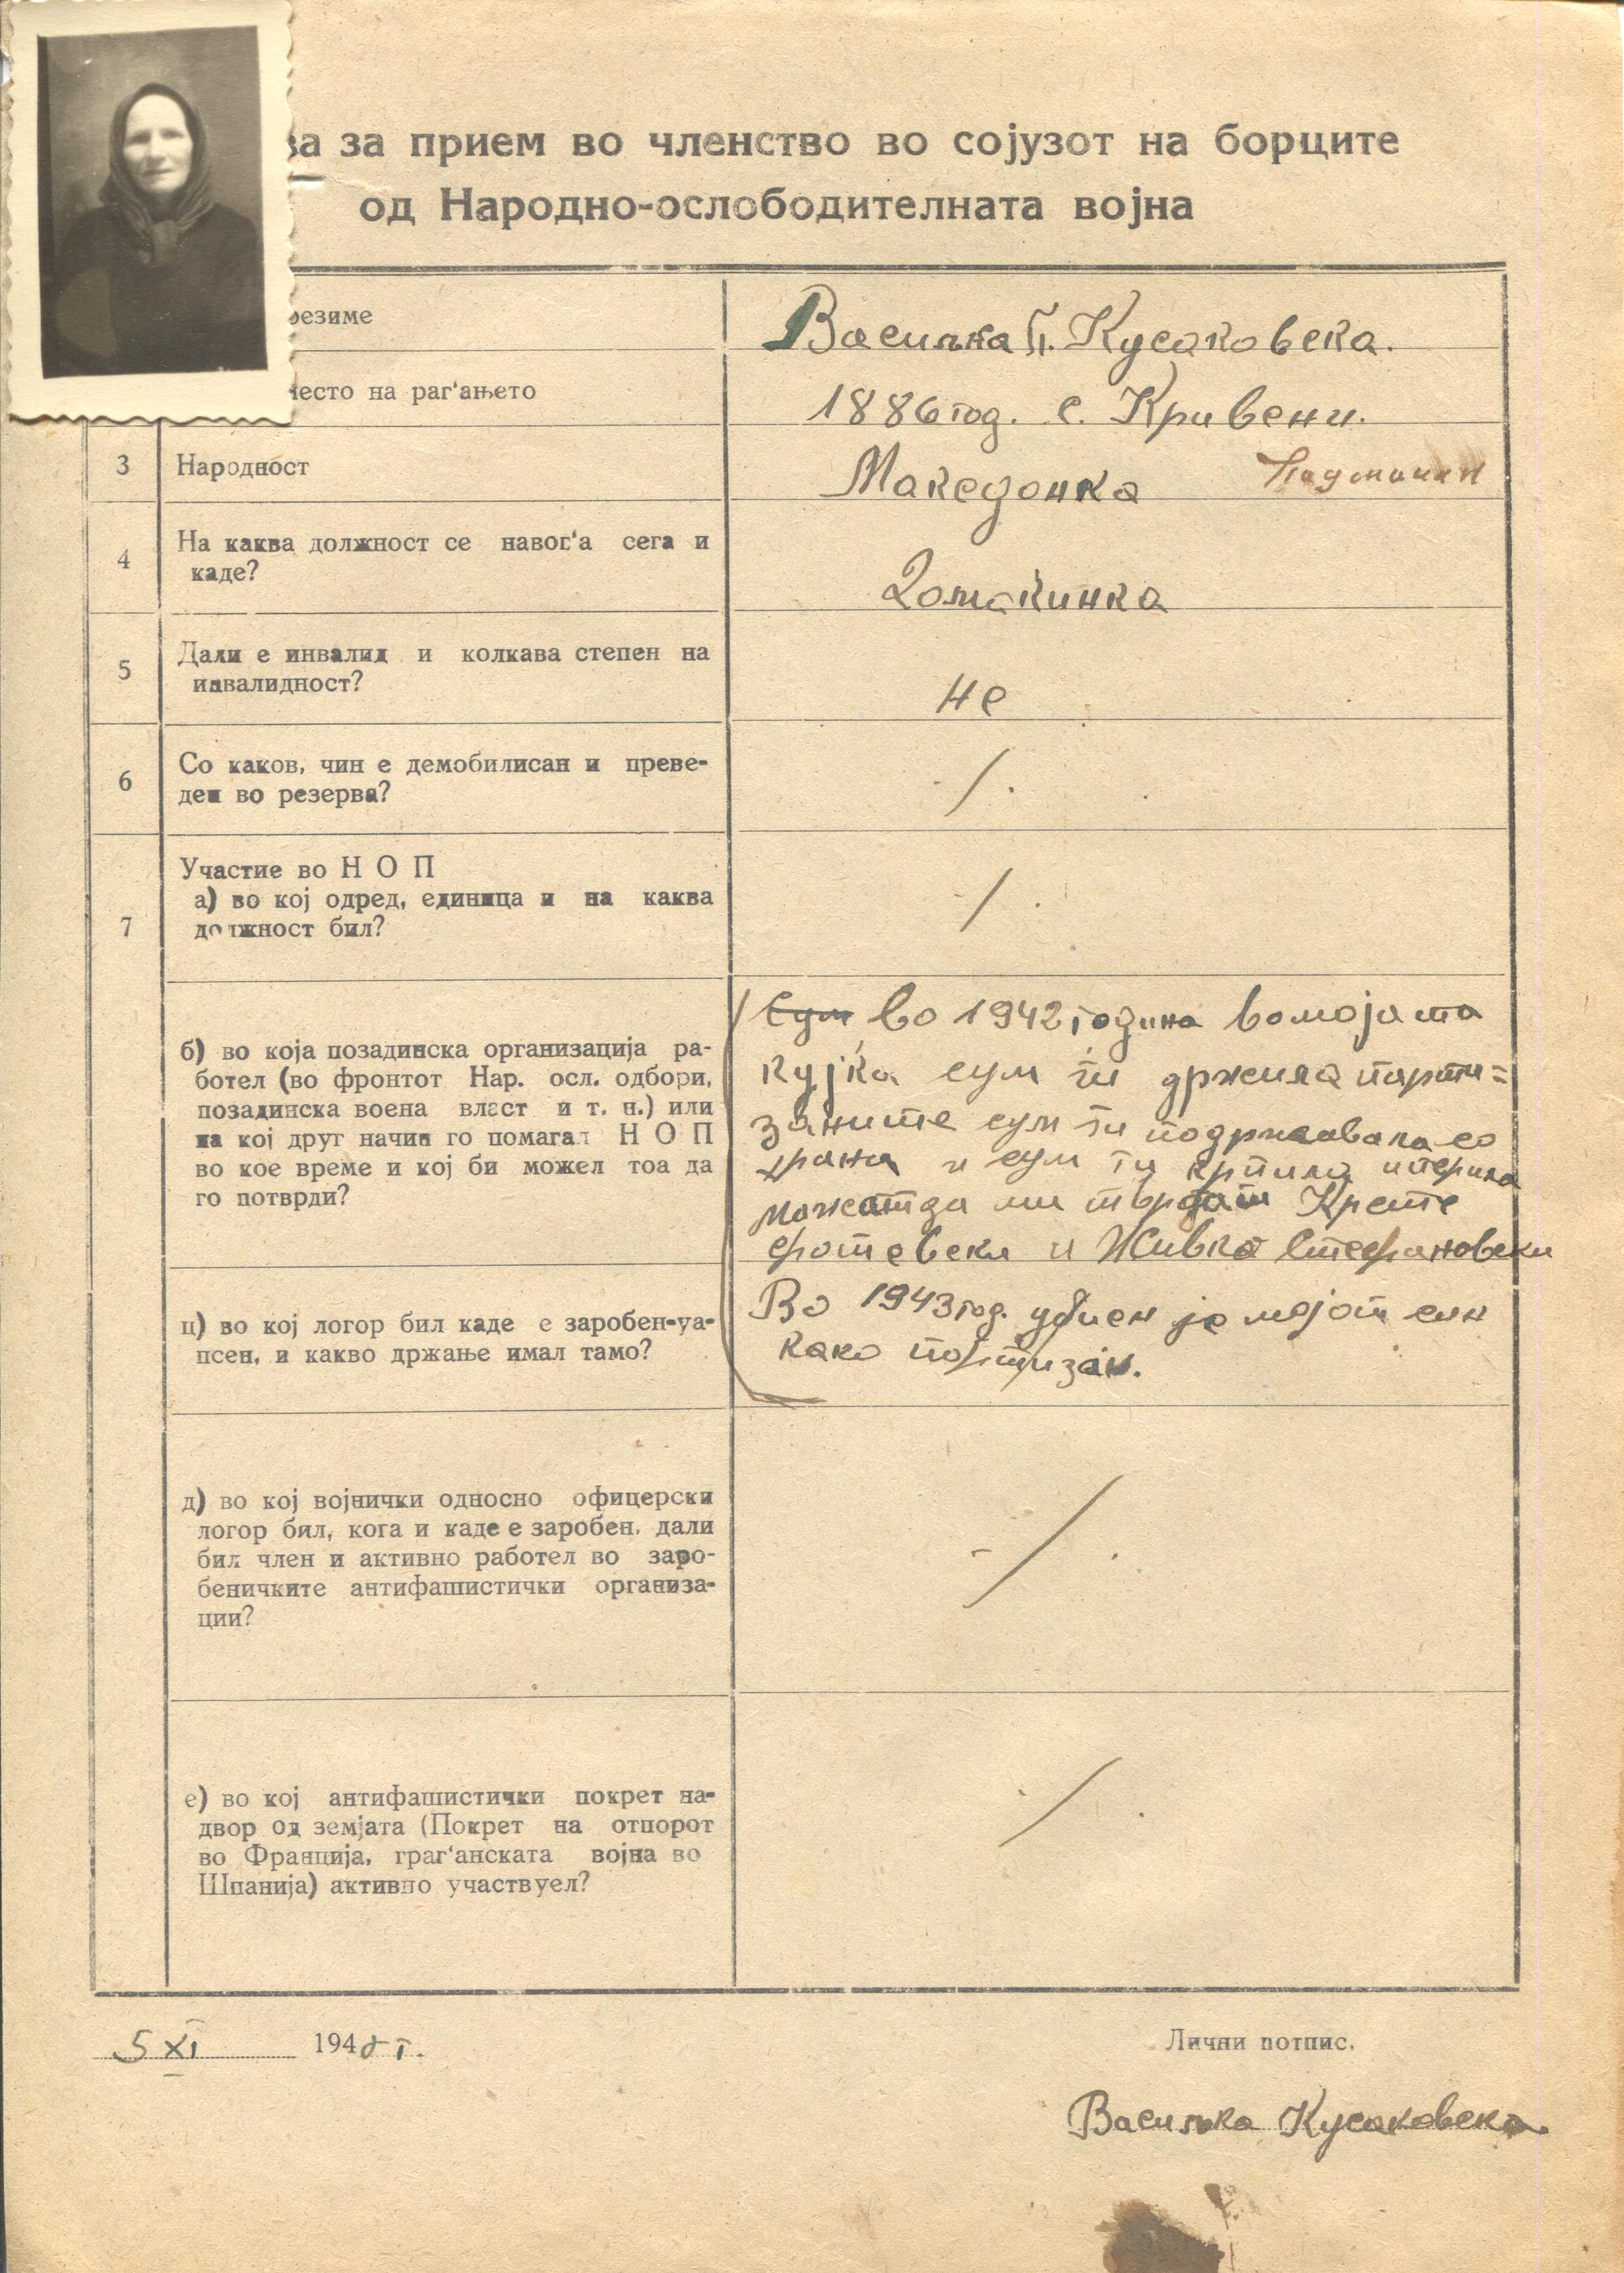 ва за прием во членство во сојузот на борците
од Народно-ослободителната војна
резиме
Василка П. Кусаковска.
место на раг'ањето
1886 год. с. Кривени.
3 Народност
Македонка
4 На каква должност се навог'а сега и
каде?
Домаќинка
5 Дали е инвалид и колкава степен на
инвалидност?
не
6 Со каков, чин е демобилисан и преве-
ден во резерва?
/.
7 Участие во Н О П
а) во кој одред, единица и на каква
должност бил?
/.
б) во која позадинска организација ра-
ботел (во фронтот Нар. осл. одбори,
позадинска воена власт и т. н.) или
на кој друг начин го помагал Н О П
во кое време и кој би можел тоа да
го потврди?
Сум во 1942 година во мојата
кујќа сум ги држела парти=
заните сум ги подржавала со
храна и сум ги крпила и перила
можат да ми тврдат Крсте
Фотевски и Живко Стефановски
ц) во кој логор бил каде е заробен-уа-
псен, и какво држање имал тамо?
Во 1943 год. убиен је мојот син
како портизан.
д) во кој војнички односно офицерски
логор бил, кога и каде е заробен, дали
бил член и активно работел во заро-
беничките антифашистички организа-
ции?
/.
е) во кој антифашистички покрет на-
двор од земјата (Покрет на отпорот
во Франција, граг'анската војна во
Шпанија) активно участвуел?
/.
5 XI 1948 г.
Лични потпис,
Василка Кусаковска